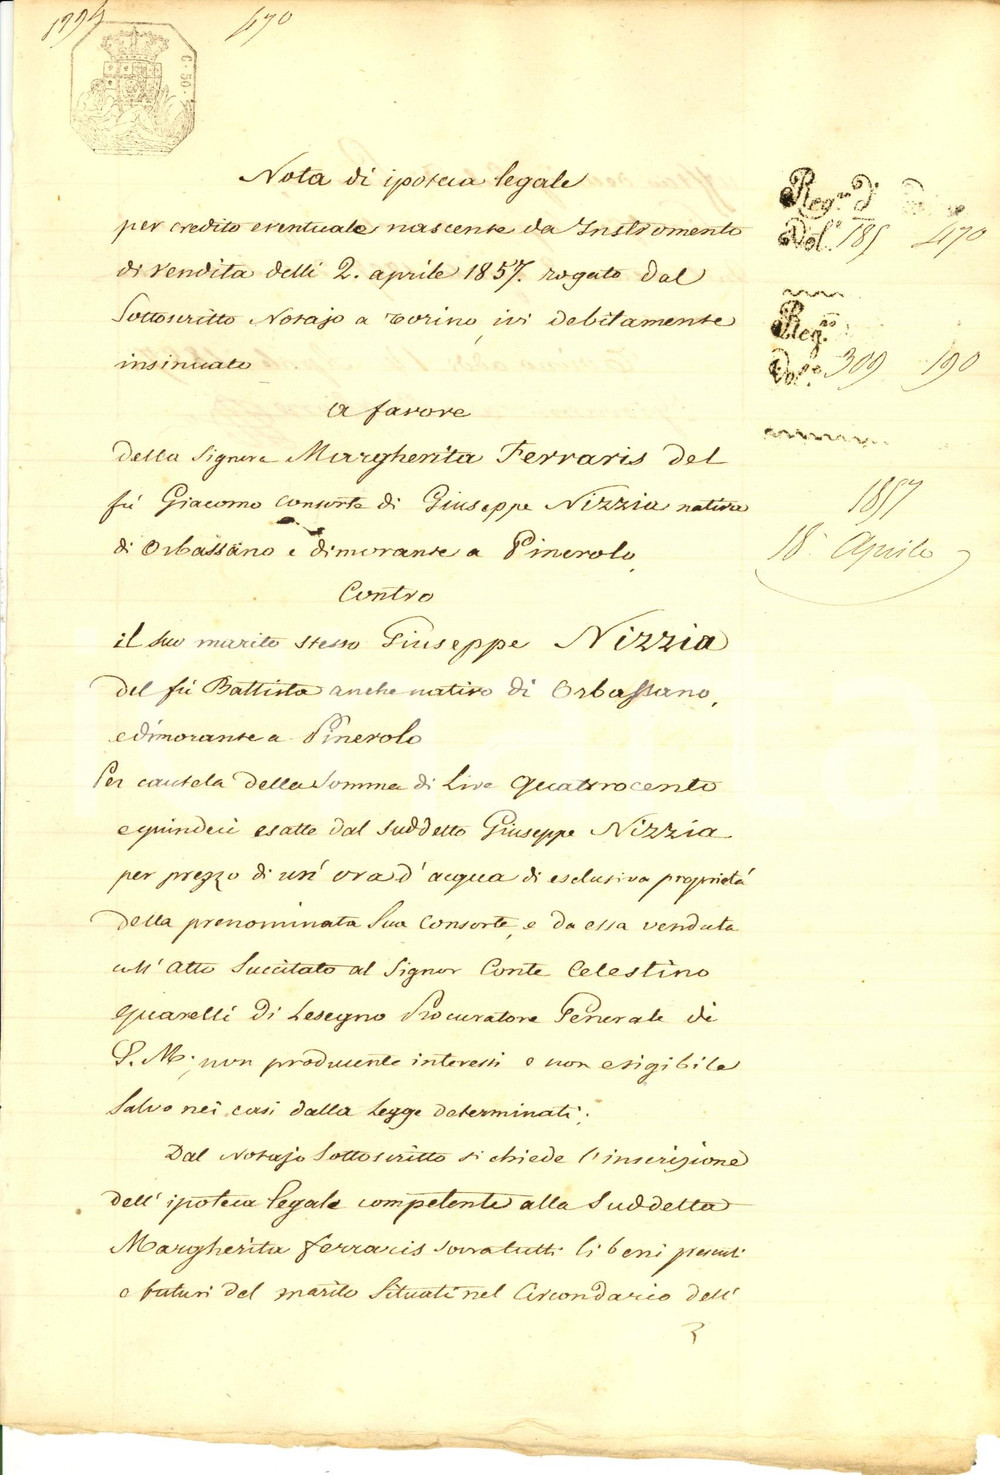 470
C. 50.
Nota di ipoteca legale
per credito eventuale nascente da Instromento
di vendita delli 2. aprile 1857. rogato dal
Sottoscritto Notajo a Torino, ivi debitamente
insinuato
a favore
della Signora Margherita Ferraris del
fù Giacomo consorte di Giuseppe Nizzia nativa
di Orbassano e dimorante a Pinerolo,
Contro
il suo marito stesso Giuseppe Nizzia
del fù Battista anche nativo di Orbassano,
e dimorante a Pinerolo
Per cautela della Somma di Lire quattrocento
e quindeci esatte dal suddetto Giuseppe Nizzia
per prezzo di un' ora d' acqua di esclusiva proprietà
della prenominata Sua Consorte, e da essa venduta
coll' Atto Succitato al Signor Conte Celestino
Quarelli di Lesegno Procuratore Generale di
S. M., non producente interessi e non esigibile
Salvo nei casi dalla Legge determinati;
Dal Notajo Sottoscritto si chiede l'inscrizione
dell' ipoteca legale competente alla Suddetta
Margherita Ferraris sovra tutti li beni presenti
e futuri del marito Situati nel Circondario dell'
Reg.º d'
Vol.º 185 470
Reg.º
Vol.º 309 190
1857
18 Aprile